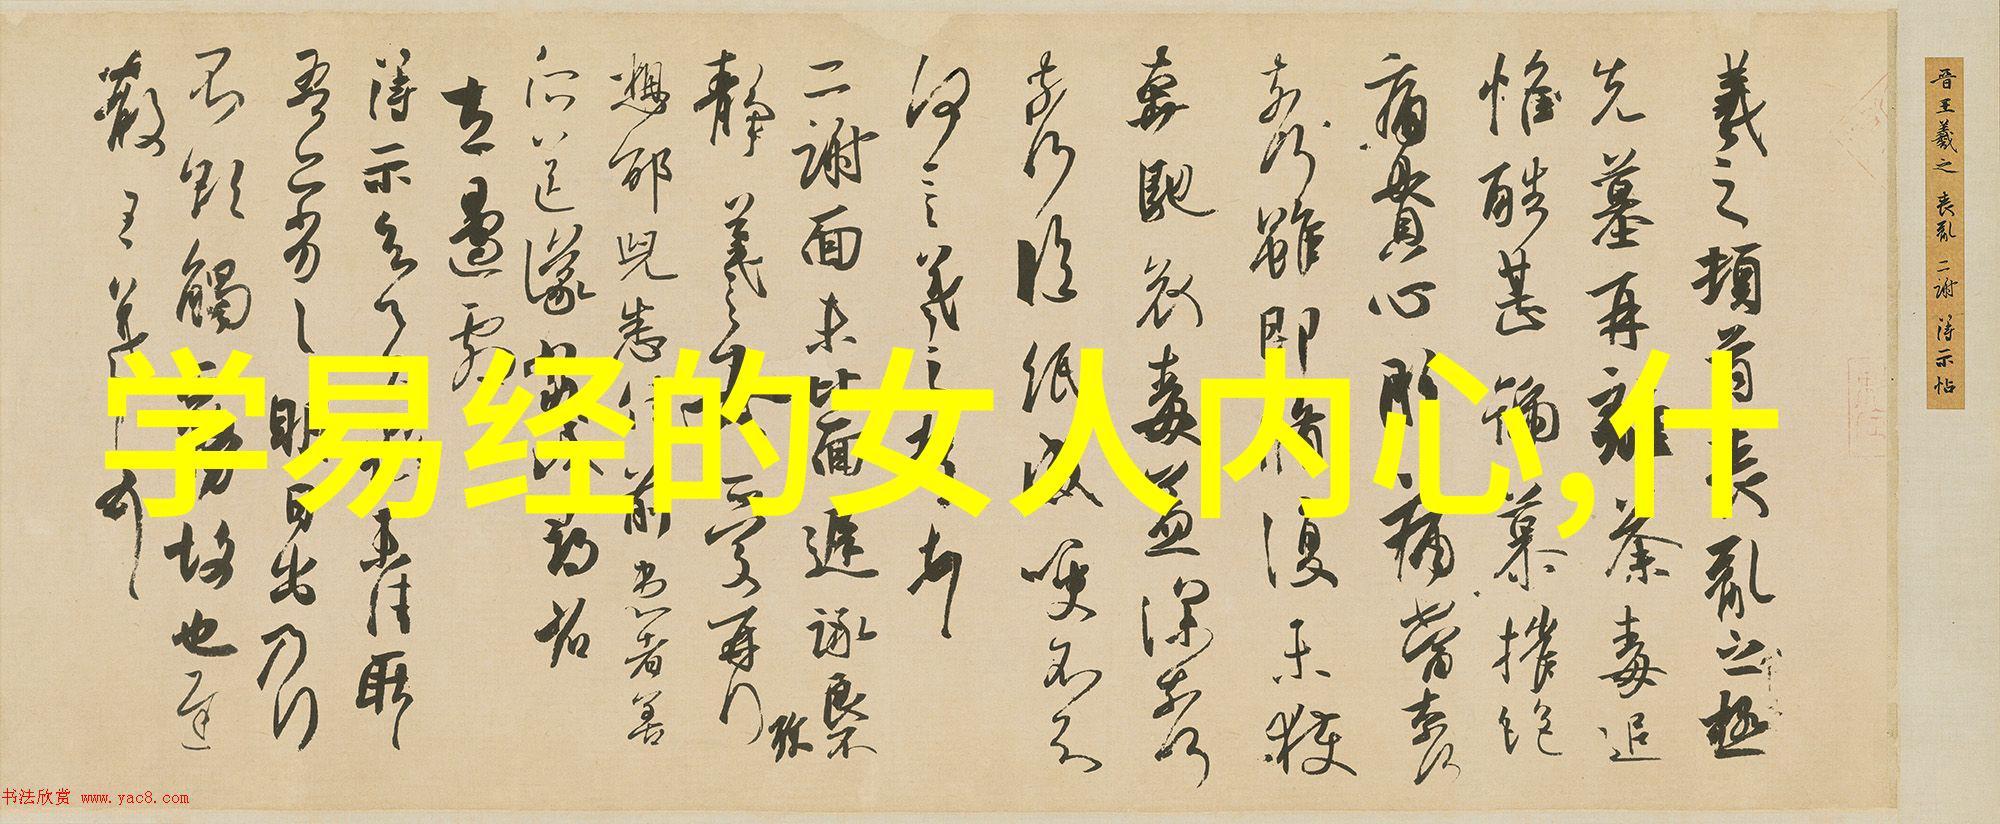 晉王羲之 喪亂 二謝 得示帖
羲之頓首喪亂之極
先墓再離荼毒追
惟酷甚號慕摧絶
痛貫心肝痛當奈何
奈何雖即脩復未獲
奔馳哀毒益深奈何
奈何臨紙感哽不知
何言羲之頓首頓首
二謝面未比面遲詠良不
靜羲之女愛再拜
想邵兒悉佳前患者善
得示知足下猶未佳耿耿
吾亦劣劣明日出乃行
不欲觸霧故也遲
散王羲之頓首
学易经的女人内心,什
书法欣赏 www.yac8.com